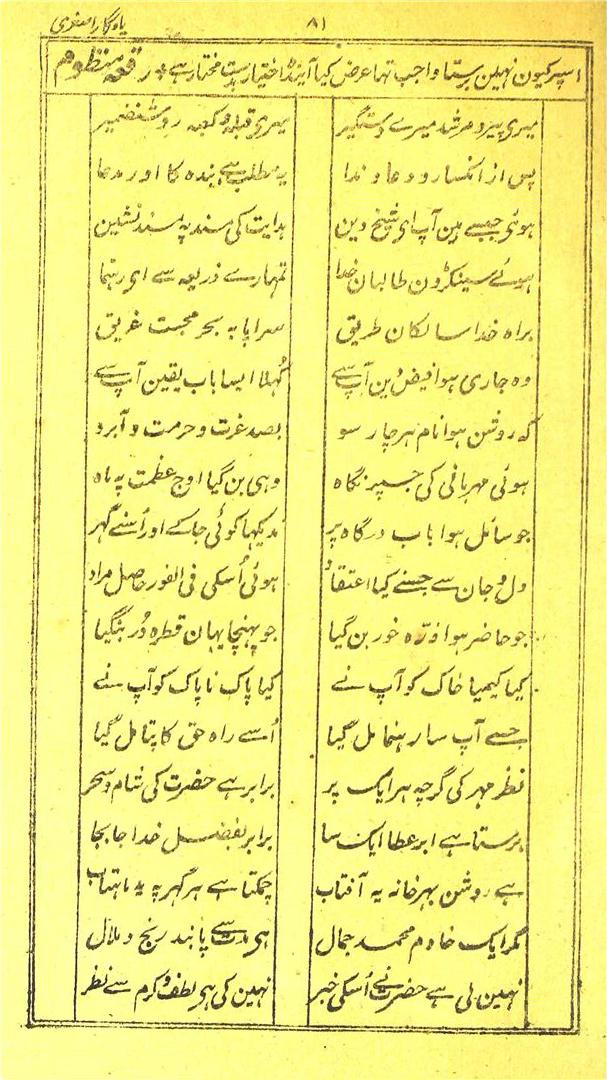 یادگار اصغری
۸۱
اسپر کیون نہین برستا واجب تھا عرض کیا آیندہ اختیار بدست مختار ہے * رقعہ منظوم
میری پیر و مرشد میرے دستگیر میری قبلہ و کعبہ روشنضمیر
پس از انکسار و دعا و ندا یہ مطلب ہے بندہ کا اور مدعا
ہوئی جبسے ہین آپ ای شیخ دین ہدایت کی مسند پہ مسند نشین
ہوئے سینکڑون طالبان خدا تمہارے ذریعہ سے ای رہنما
براہ خدا سالکان طریق سراپا بہ بحر محبت غریق
وہ جاری ہوا فیض دین آپ سے کُہلا ایسا باب یقین آپ سے
کہ روشن ہوا نام ہر چار سو بصد عزت و حرمت و آبرو
ہوئی مہربانی کی جسپر نگاہ وہی بن گیا اوج عظمت پہ ماہ
جو سائل ہوا باب درگاہ پر ندیکہا کوئی جاکے اور اُسنے گہر
دل و جان سے جسنے کیا اعتقاد ہوئی اُسکی فی الفور حاصل مراد
جو حاضر ہوا ذرّہ خور بن گیا جو پہنچا یہان قطرہ دُر بنگیا
کیا کیمیا خاک کو آپ نے کیا پاک ناپاک کو آپ نے
جسے آپ سا رہنما مل گیا اُسے راہ حق کا پتا مل گیا
نظر مہر کی گرچہ ہر ایک پر برابر ہے حضرت کی شام و سحر
برستا ہے ابر عطا ایک سا برابر بفضل خدا جابجا
ہے روشن بہر خانہ یہ آفتاب چمکتا ہے ہر گہر پہ یہ ماہتاب
مگر ایک خادم محمد جمال ہی مدت سے پابند رنج و ملال
نہین لی ہے حضرت نے اُسکی خبر نہین کی ہی لطف و کرم سے نظر